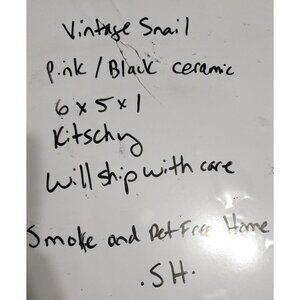 Vintage Snail
Pink / Black ceramic
6 x 5 x 1
Kitschy
Will ship with care
Smoke and Pet Free Home
.SH.